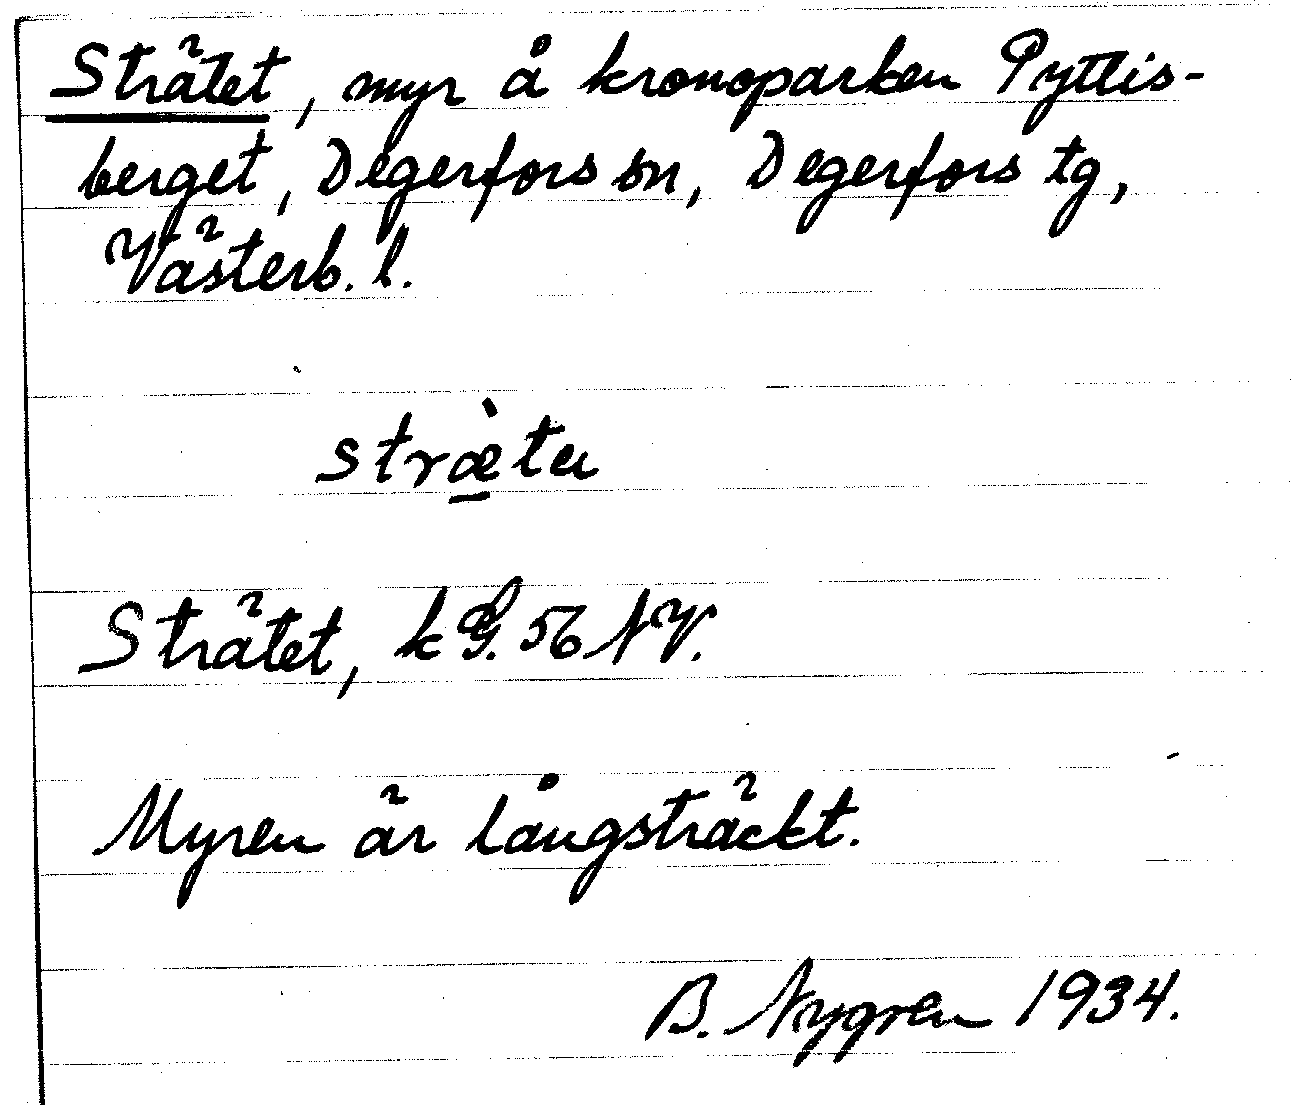 Strätet, myr å kronoparken Pyttis-
berget, Degerfors sn, Degerfors tg,
Västerb. l.
strætu
Strätet, kG. 56 NV.
Myren är långsträckt.
B. Nygren 1934.